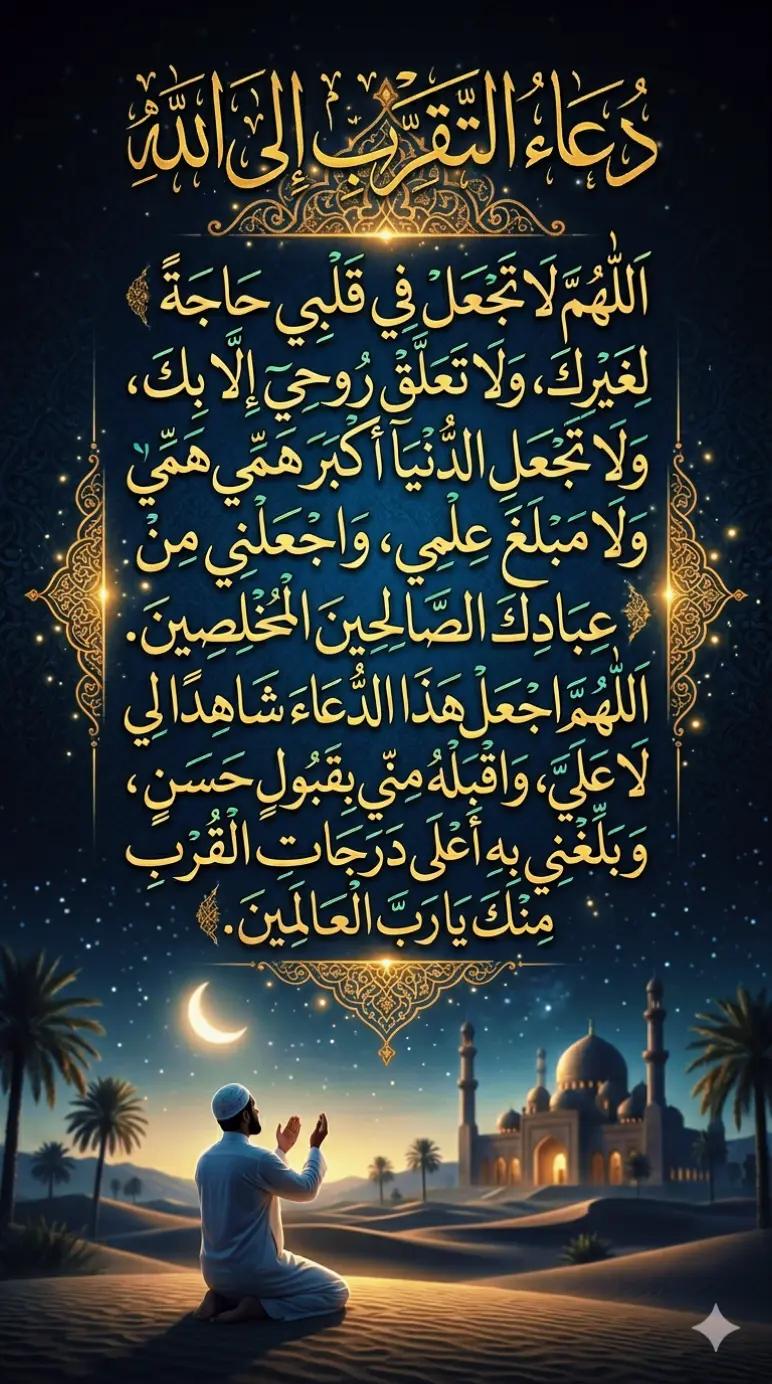 دُعَاءُ التَّقَرُّبِ إِلَى اللَّهِ
اَللّٰهُمَّ لَا تَجْعَلْ فِي قَلْبِي حَاجَةً
لِغَيْرِكَ، وَلَا تَعَلَّقْ رُوحِيَ إِلَّا بِكَ،
وَلَا تَجْعَلِ الدُّنْيَآ أَكْبَرَ هَمِّي هَمِّي
وَلَا مَبْلَغَ عِلْمِي، وَاجْعَلْنِي مِنْ
عِبَادِكَ الصَّالِحِينَ الْمُخْلِصِينَ.
اَللّٰهُمَّ اجْعَلْ هَذَا الدُّعَاءَ شَاهِدًا لِي
لَا عَلَيَّ، وَاقْبَلْهُ مِنِّي بِقَبُولٍ حَسَنٍ،
وَبَلِّغْنِي بِهِ أَعْلَى دَرَجَاتِ الْقُرْبِ
مِنْكَ يَا رَبَّ الْعَالَمِينَ.